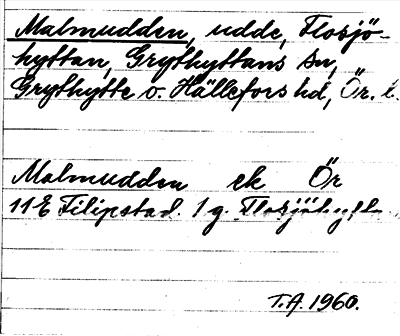 Malmudden, udde, Torsjö-
hyttan, Grythyttans sn,
Grythytte o. Hällefors hd, Ör. l.
Malmudden ek Ör
11E Filipstad. 1 g.
T.A. 1960.